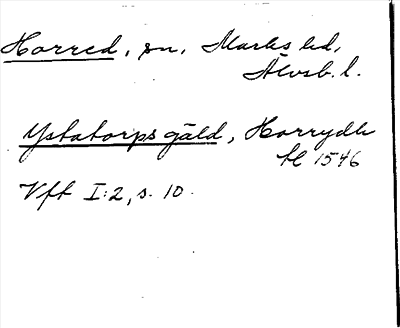 Horred, sn, Marks hd,
Älvsb. l.
Ystatorps gäld, Horrydh
hl 1546
Vft I:2, s. 10.